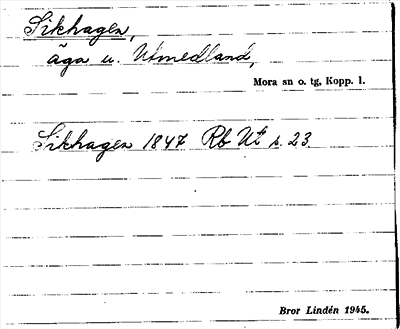 Sikhagen,
äga u. Utmedland,
Mora sn o. tg, Kopp. l.
Sikhagen 1847 Rb Ut s. 23.
Bror Lindén 1945.